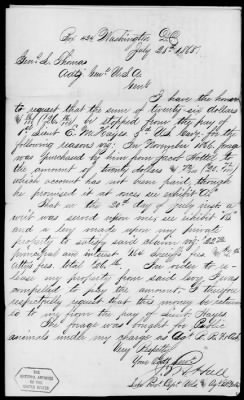 Box 434 Washington D.C.
July 21st 1868.
Genl. L. Thomas
Adjt. Genl. U.S.A.
Genl.
I have the honor
to request that the sum of twenty-six dollars
be stopped from the pay of
1st Lieut E. M. Hayes 5th U.S. Cavy. for the
following reasons viz: In November 1865 forage
was purchased by him from Jacob Hottel to
the amount of twenty dollars
which account has not been paid, though
he promised it at once see exhibit "A"
That on the 20th day of July inst. a
writ was served upon me, see exhibit "B"
and a levy made upon my private
property to satisfy said claim
principal and interest
attys fees, total 26.
In order to re-
lease my property from said levy I was
compelled to pay the amount. I therefore
respectfully request that this money be return-
ed to me from the pay of Lieut. Hayes.
The forage was bought for Public
animals under my charge as
Very Respectfully
Your Obdt. Servt.
THE
NATIONAL ARCHIVES
OF THE
UNITED STATES